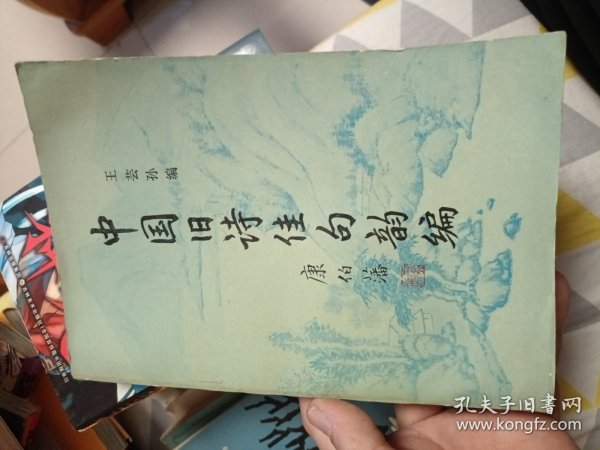 王芸孙编
中国旧诗佳句韵编
康伯藩
孔夫子旧书网
www.kongfz.com